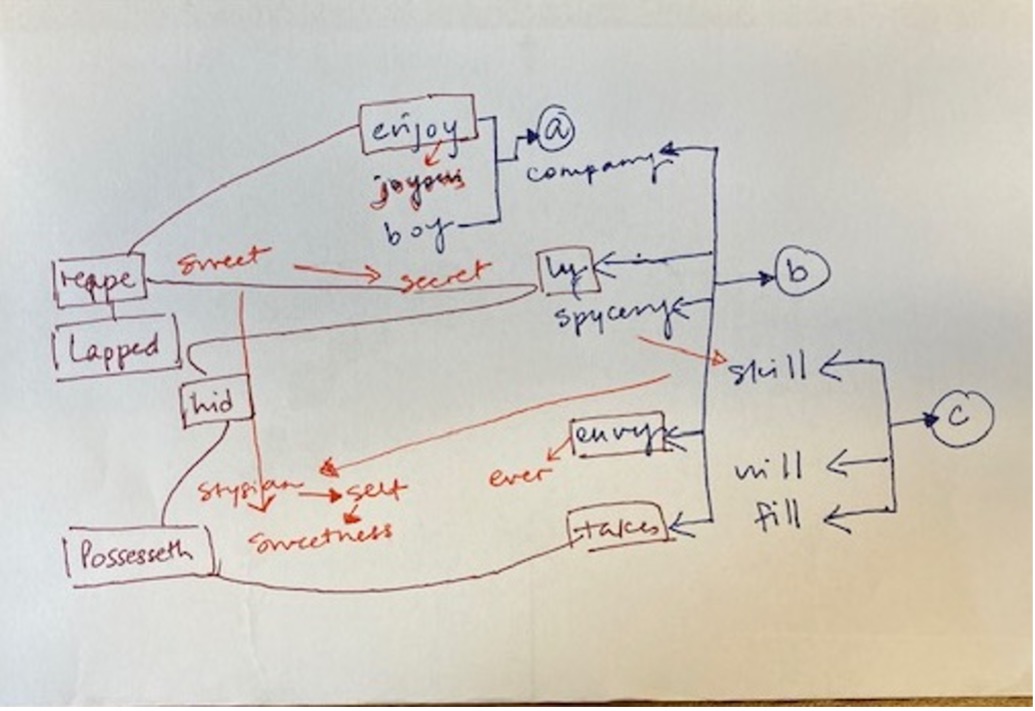 enjoy
a
joyous
company
boy
sweet
secret
ly
b
reape
spycery
Lapped
skill
hid
envy
c
ever
will
stygian
self
fill
takes
sweetness
Possesseth